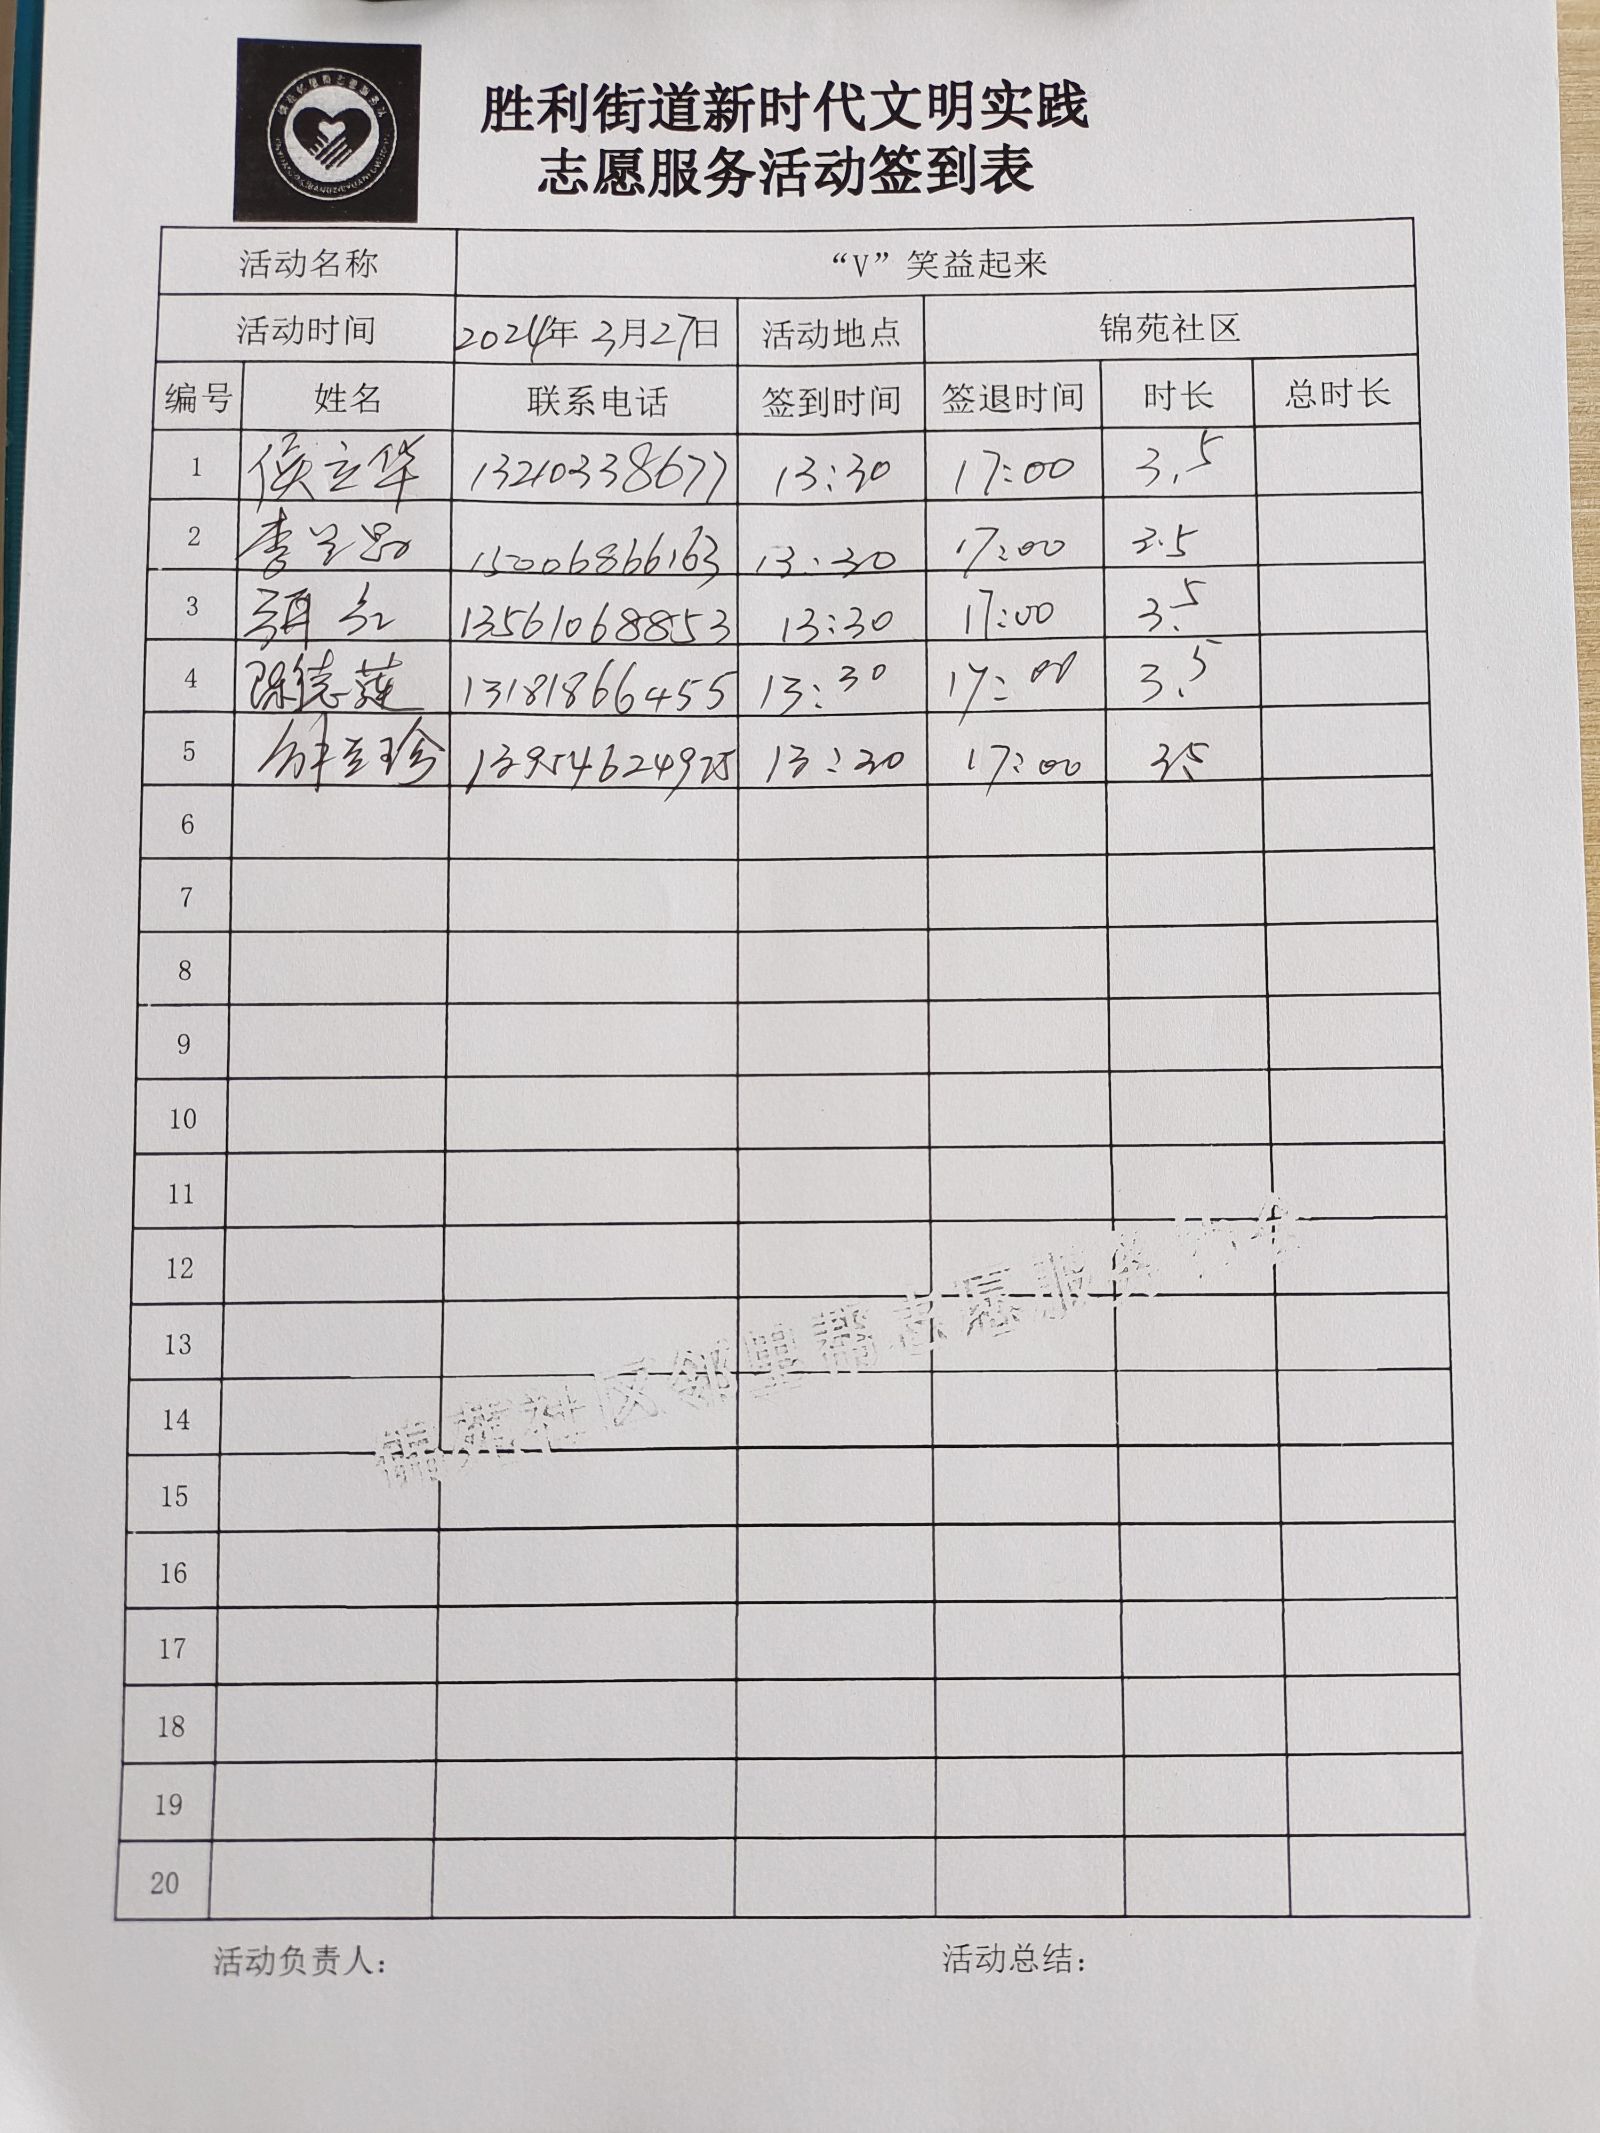 胜利街道新时代文明实践
志愿服务活动签到表
活动名称 “V”笑益起来
活动时间 2024年3月27日 活动地点 锦苑社区
编号 姓名 联系电话 签到时间 签退时间 时长 总时长
1 侯立华 13210338677 13:30 17:00 3.5
2 李兰 15006866163 13:30 17:00 3.5
3 红 13561068853 13:30 17:00 3.5
4 陈德莲 13181866455 13:30 17:00 3.5
5 解立珍 13954624975 13:30 17:00 3.5
6
7
8
9
10
11
12
13
14
15
16
17
18
19
20
锦苑社区邻里帮志愿服务协会
活动负责人：
活动总结：